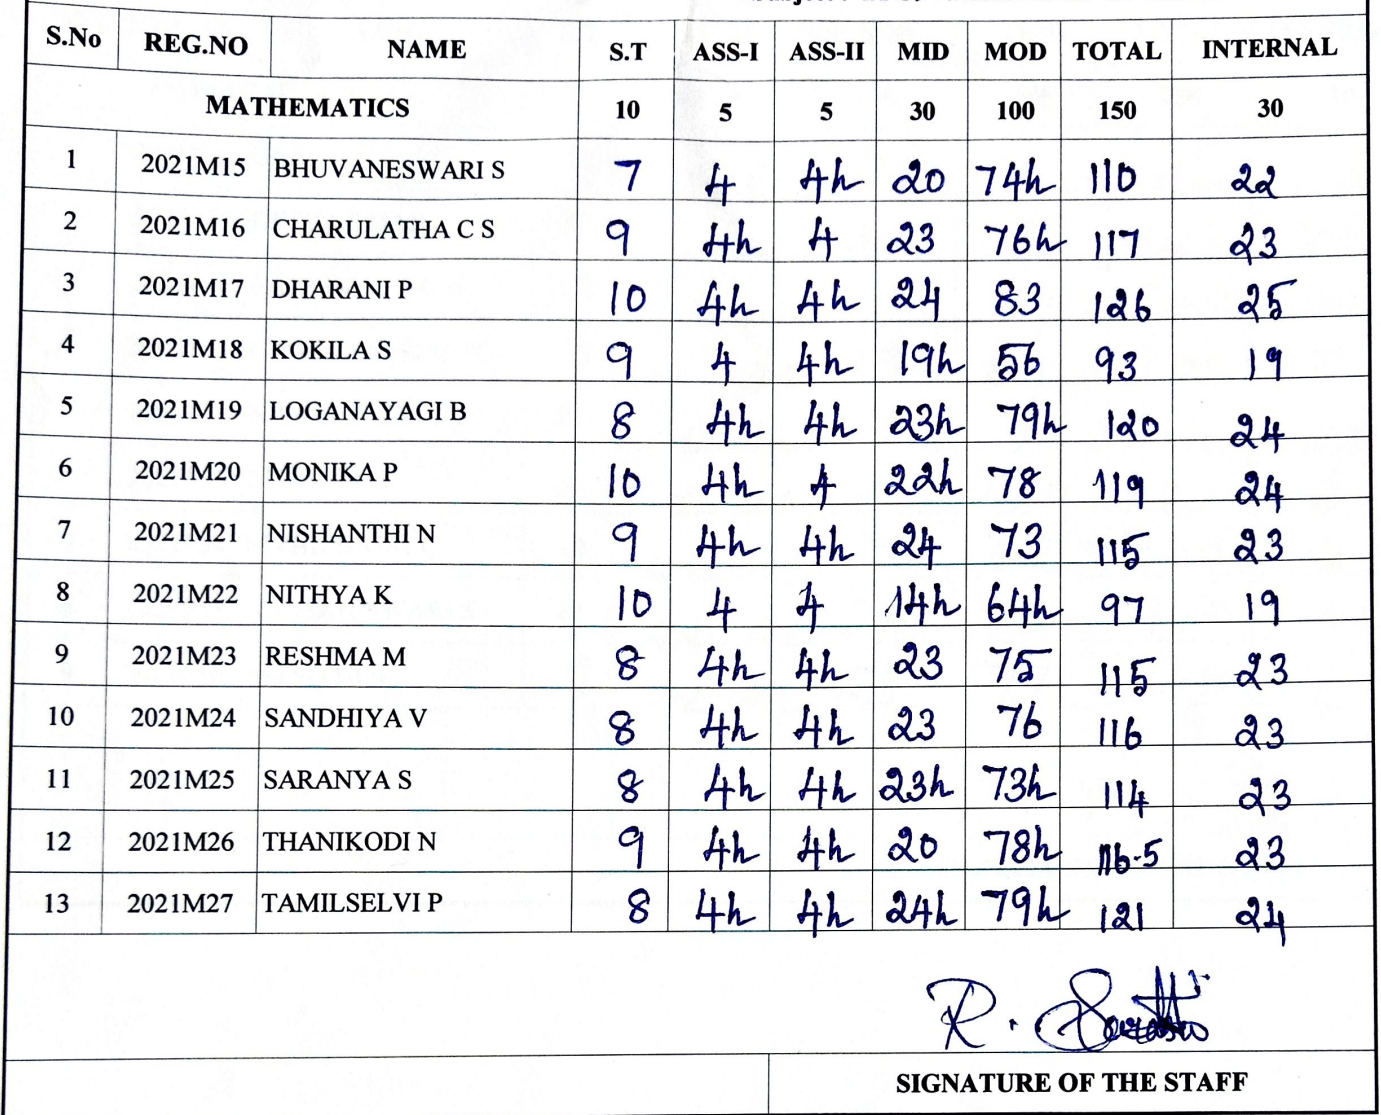 S.No REG.NO NAME S.T ASS-I ASS-II MID MOD TOTAL INTERNAL
MATHEMATICS 10 5 5 30 100 150 30
1 2021M15 BHUVANESWARI S 7 4 4h 20 74h 110 22
2 2021M16 CHARULATHA C S 9 4h 4 23 76h 117 23
3 2021M17 DHARANI P 10 4h 4h 24 83 126 25
4 2021M18 KOKILA S 9 4 4h 19h 56 93 19
5 2021M19 LOGANAYAGI B 8 4h 4h 23h 79h 120 24
6 2021M20 MONIKA P 10 4h 4 22h 78 119 24
7 2021M21 NISHANTHI N 9 4h 4h 24 73 115 23
8 2021M22 NITHYA K 10 4 4 14h 64h 97 19
9 2021M23 RESHMA M 8 4h 4h 23 75 115 23
10 2021M24 SANDHIYA V 8 4h 4h 23 76 116 23
11 2021M25 SARANYA S 8 4h 4h 23h 73h 114 23
12 2021M26 THANIKODI N 9 4h 4h 20 78h 116.5 23
13 2021M27 TAMILSELVI P 8 4h 4h 24h 79h 121 24
R.
SIGNATURE OF THE STAFF